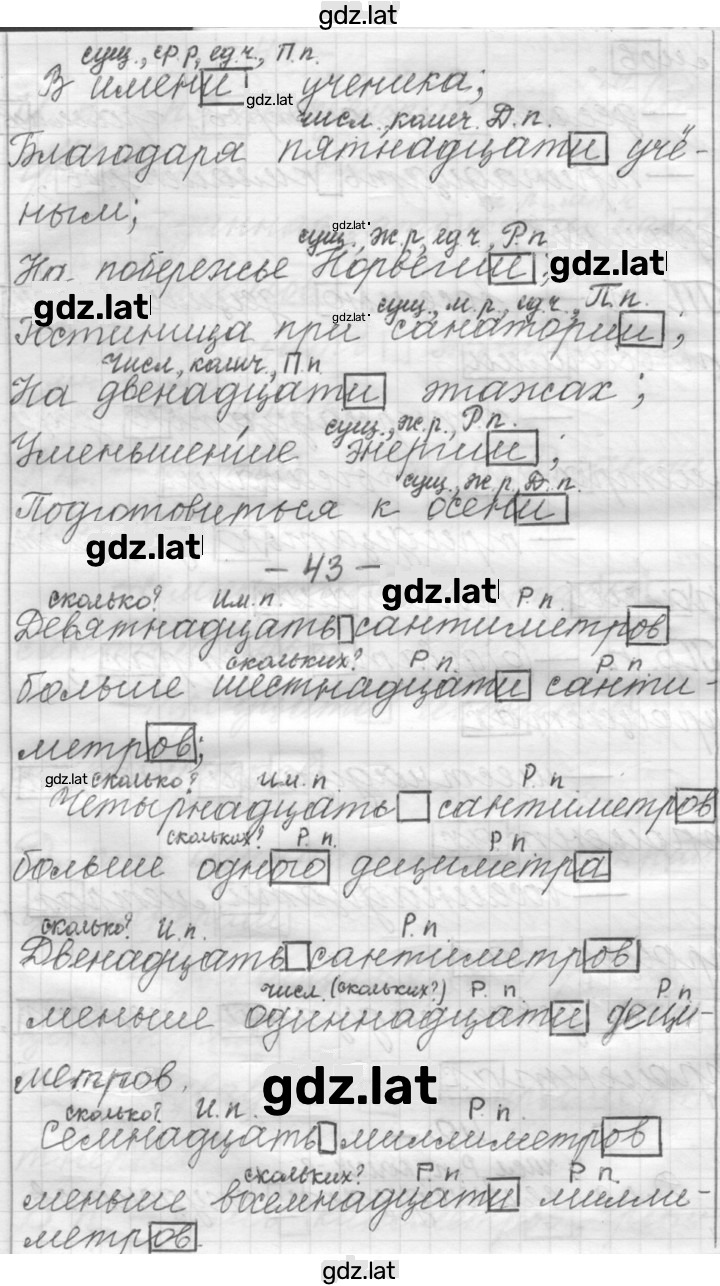 gdz.lat
сущ., ср.р, ед.ч., П.п.
В имени ученика;
gdz.lat
числ., колич. Д.п.
Благодаря пятнадцати учё-
ным;
gdz.lat
сущ., ж.р, ед.ч., Р.п
На побережье Норвегии;
gdz.lat
gdz.lat
gdz.lat
сущ., м.р, ед.ч., П.п.
Гостиница при санатории;
числ, колич., П.п
На двенадцати этажах;
сущ., ж.р., Р.п.
Уменьшение энергии;
сущ, ж.р, Д.п.
Подготовиться к осени
gdz.lat
- 43 -
gdz.lat
сколько? Им.п. Р.п.
Девятнадцать сантиметров
скольких? Р.п. Р.п
больше шестнадцати санти-
метров;
gdz.lat
сколько? Им.п. Р.п
Четырнадцать сантиметров
скольких? Р.п. Р.п.
больше одного дециметра
сколько? И.п. Р.п
Двенадцать сантиметров
числ. (скольких?) Р.п. Р.п
меньше одиннадцати деци-
метров.
gdz.lat
сколько? И.п. Р.п.
Семнадцать миллиметров
скольких? Р.п. Р.п.
меньше восемнадцати милли-
метров.
gdz.lat